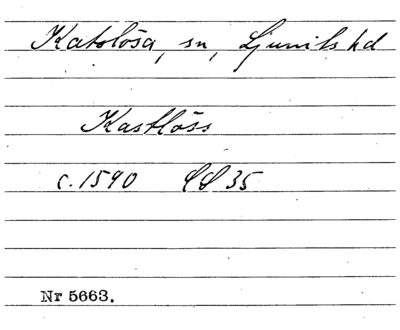 Katslösa, sn, Ljunits hd
Kastlöss
c. 1590 LL 35
Nr 5663.